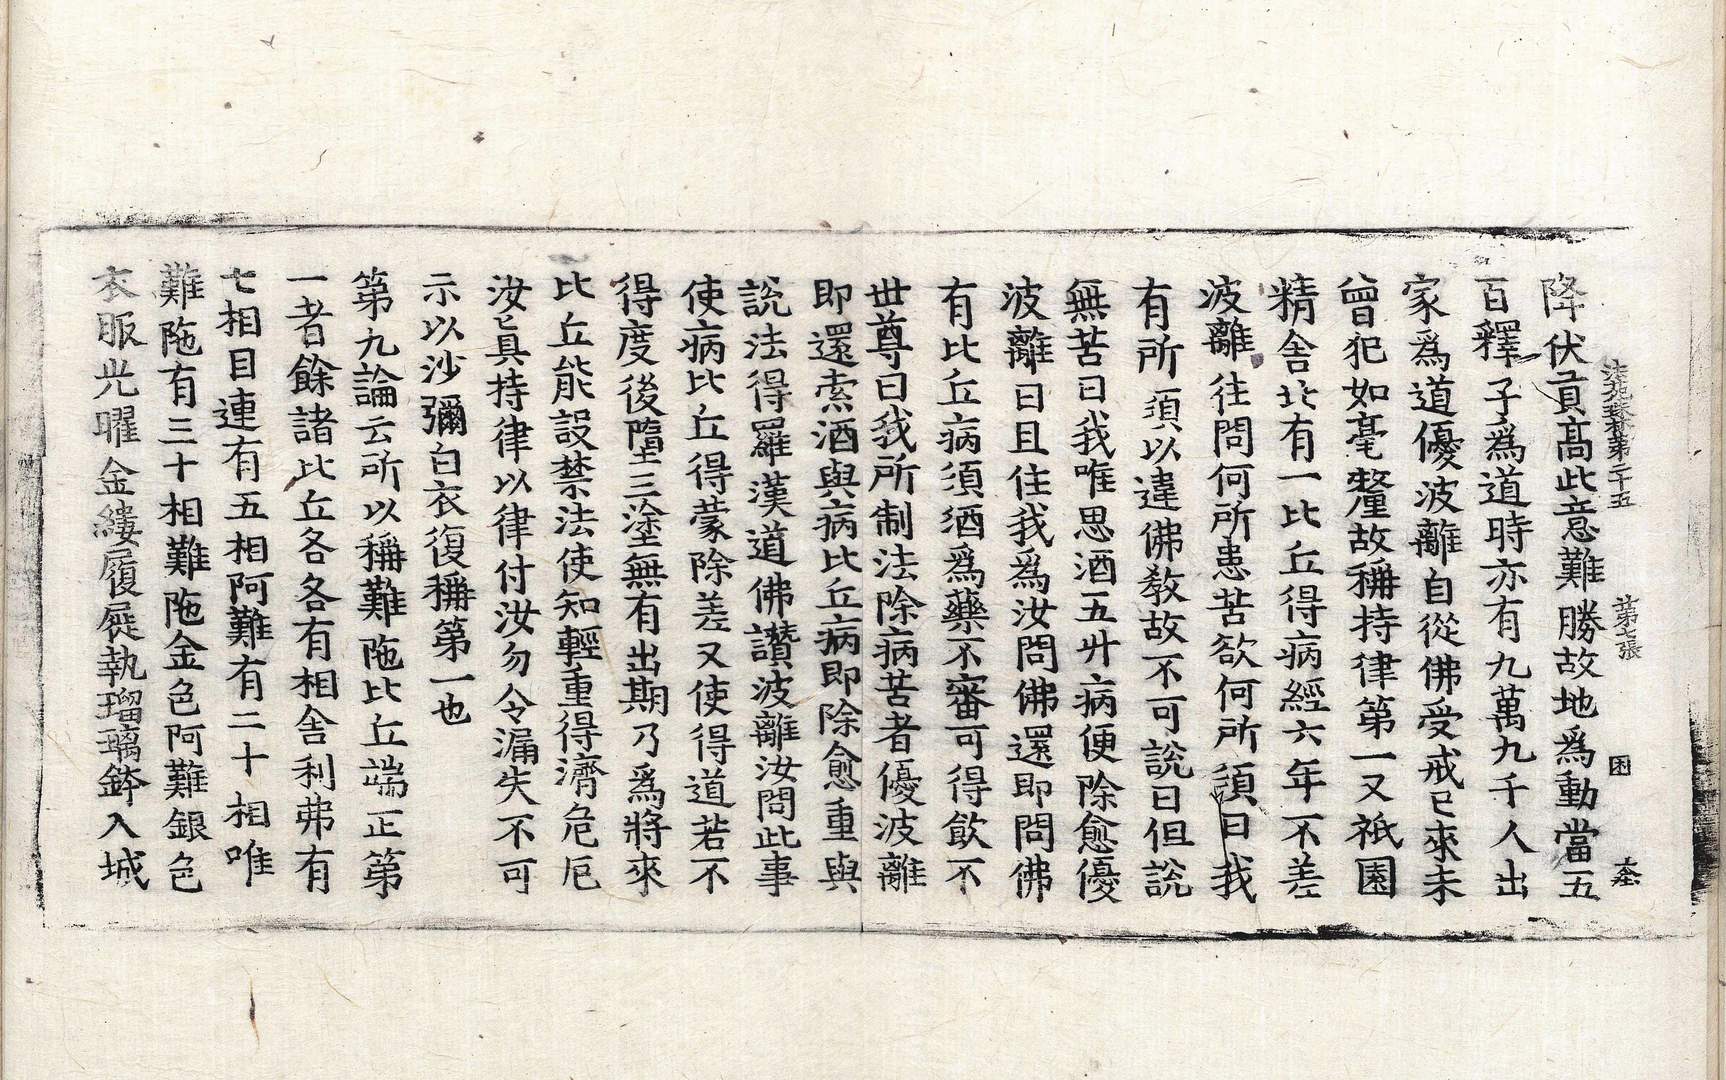 降伏貢高此意難勝故地為動當五
法苑珠林第二十五　第七張　困
百釋子為道時亦有九萬九千人出
家為道優波離自從佛受戒已來未
曾犯如毫釐故稱持律第一又祇園
精舍北有一比丘得病經六年不差
波離往問何所患苦欲何所須曰我
有所須以違佛教故不可說曰但說
無苦曰我唯思酒五升病便除愈優
波離曰且住我為汝問佛還即問佛
有比丘病須酒為藥不審可得飲不
世尊曰我所制法除病苦者優波離
即還索酒與病比丘病即除愈重與
說法得羅漢道佛讚波離汝問此事
使病比丘得蒙除差又使得道若不
得度後墮三塗無有出期乃為將來
比丘能設禁法使知輕重得濟危厄
汝已具持律以律付汝勿令漏失不可
示以沙彌白衣復稱第一也
第九論云所以稱難陁比丘端正第
一者餘諸比丘各各有相舍利弗有
七相目連有五相阿難有二十相唯
難陁有三十相難陁金色阿難銀色
衣服光曜金縷履屣執瑠璃鉢入城